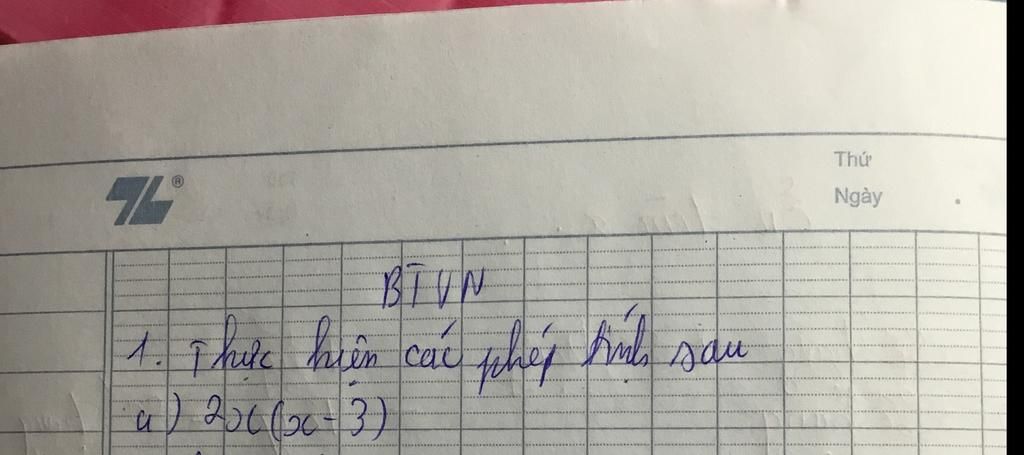 Thứ
Ngày
BTVN
1. Thực hiện các phép tính sau
a) 2x(x-3)